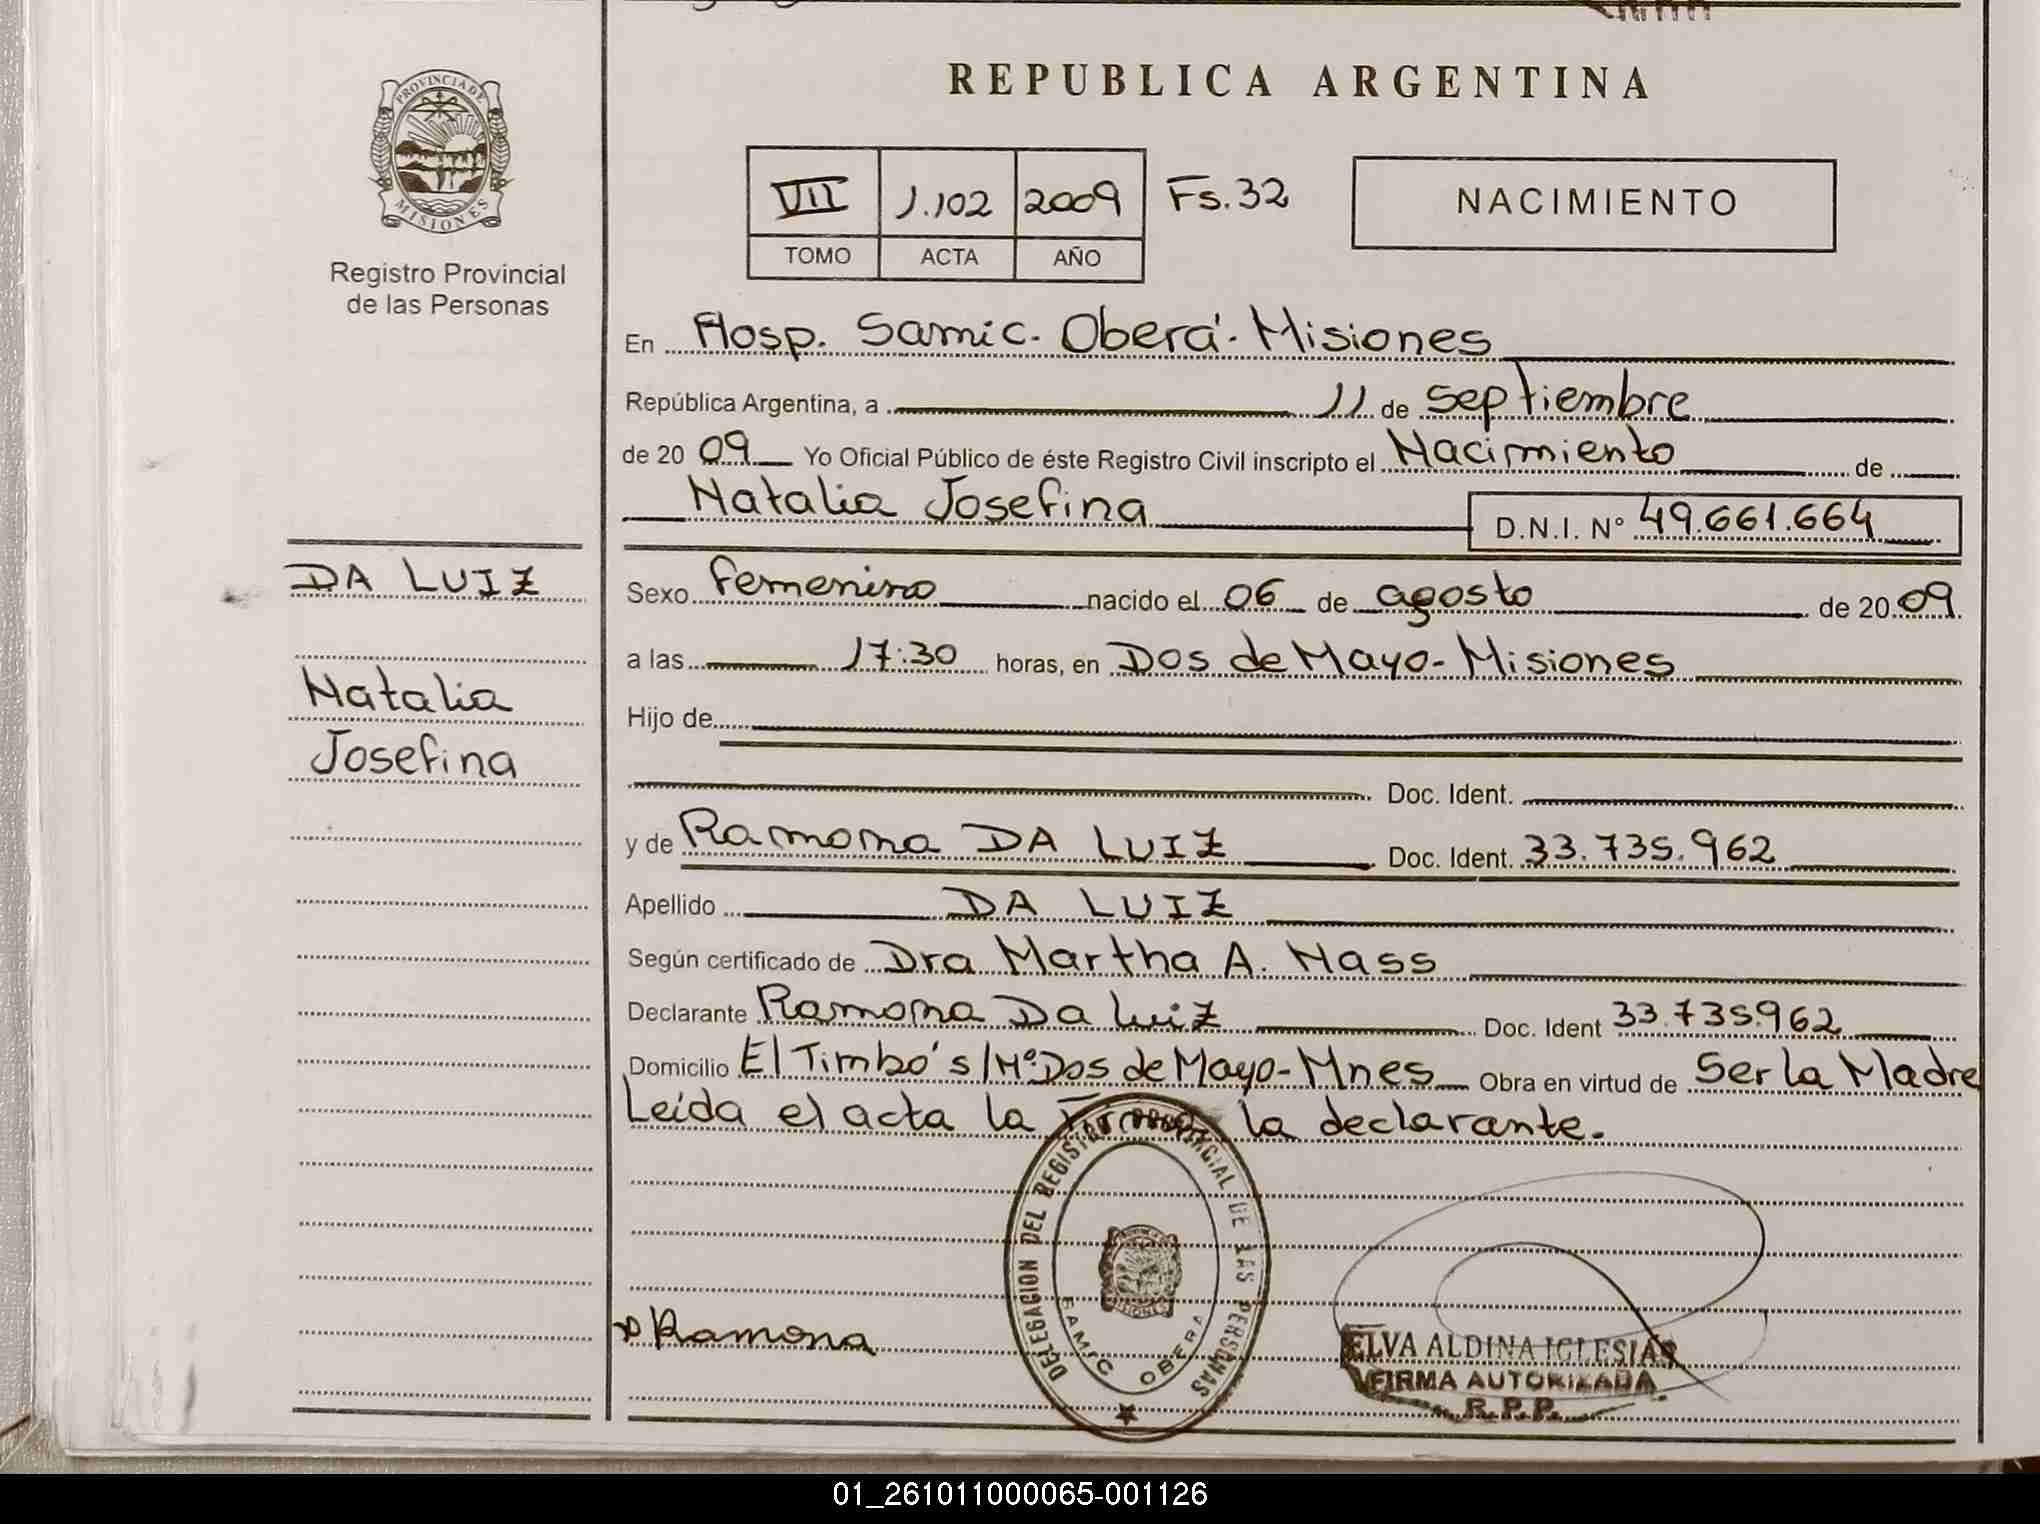 PROVINCIA DE
MISIONES
Registro Provincial
de las Personas
DA LUIZ
Natalia
Josefina
REPUBLICA ARGENTINA
VII J.102 2009 Fs.32
TOMO ACTA AÑO
NACIMIENTO
En Hosp. Samic. Oberá. Misiones
República Argentina, a 11 de septiembre
de 20 09 Yo Oficial Público de éste Registro Civil inscripto el Nacimiento de
Natalia Josefina D.N.I. N° 49.661.664
Sexo femenino nacido el 06 de agosto de 20 09
a las 17:30 horas, en Dos de Mayo - Misiones
Hijo de
Doc. Ident.
y de Ramona DA LUIZ Doc. Ident. 33.735.962
Apellido DA LUIZ
Según certificado de Dra Martha A. Nass
Declarante Ramona Da Luiz Doc. Ident 33.735.962
Domicilio El Timbó s/Nº Dos de Mayo - Mnes Obra en virtud de Ser la Madre
Leída el acta la Firma la declarante.
DELEGACION DEL REGISTRO PROVINCIAL DE LAS PERSONAS
SAMIC OBERA
Ramona
ELVA ALDINA IGLESIAS
FIRMA AUTORIZADA
R.P.P.
01_261011000065-001126